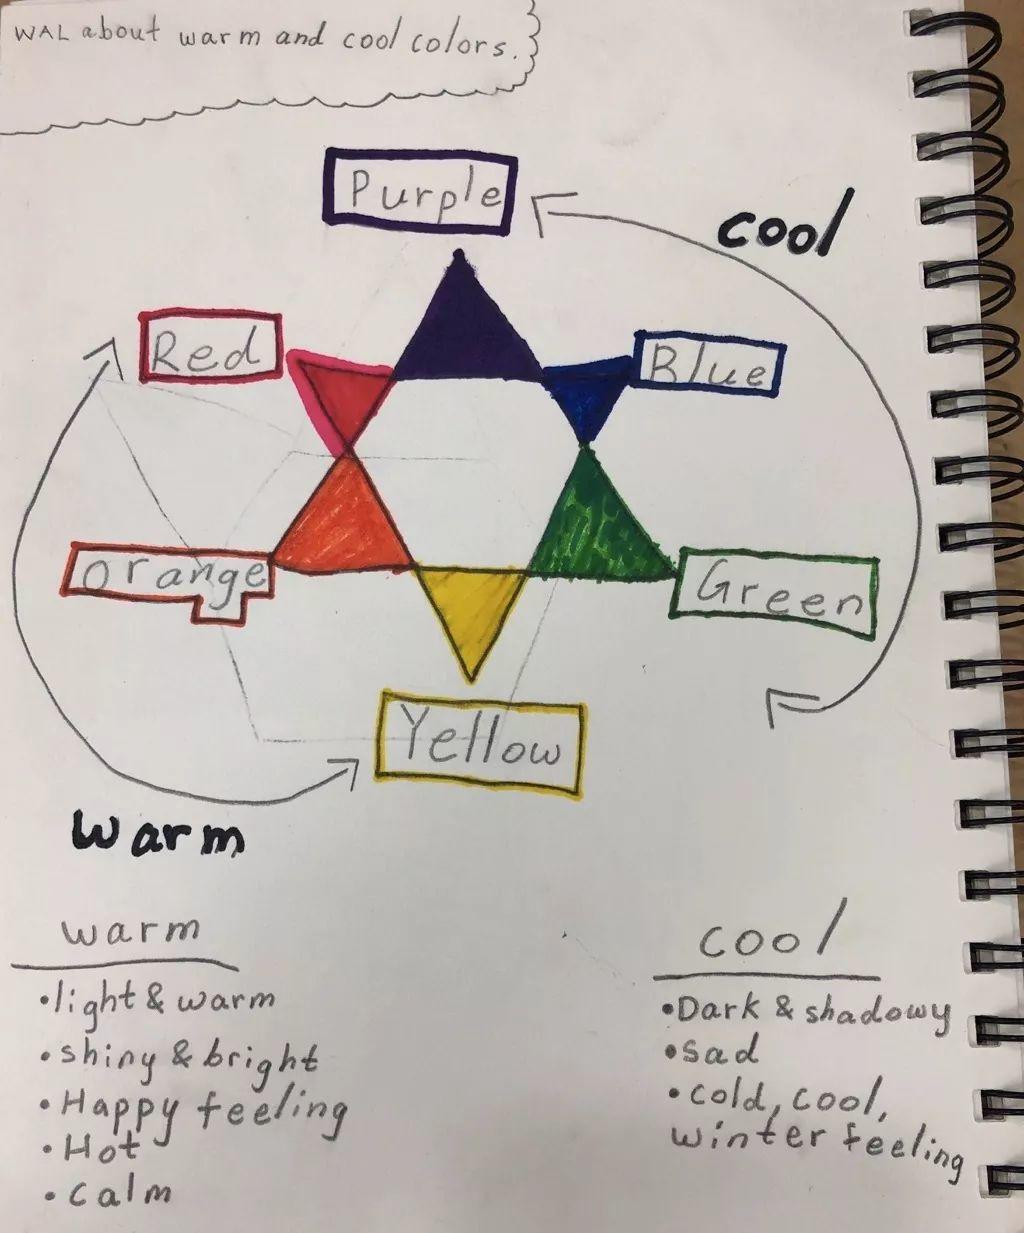 WAL about warm and cool colors.
Purple
cool
Red
Blue
orange
Green
Yellow
warm
warm
•light & warm
•shiny & bright
•Happy feeling
•Hot
•calm
cool
•Dark & shadowy
•sad
•cold, cool,
winter feeling